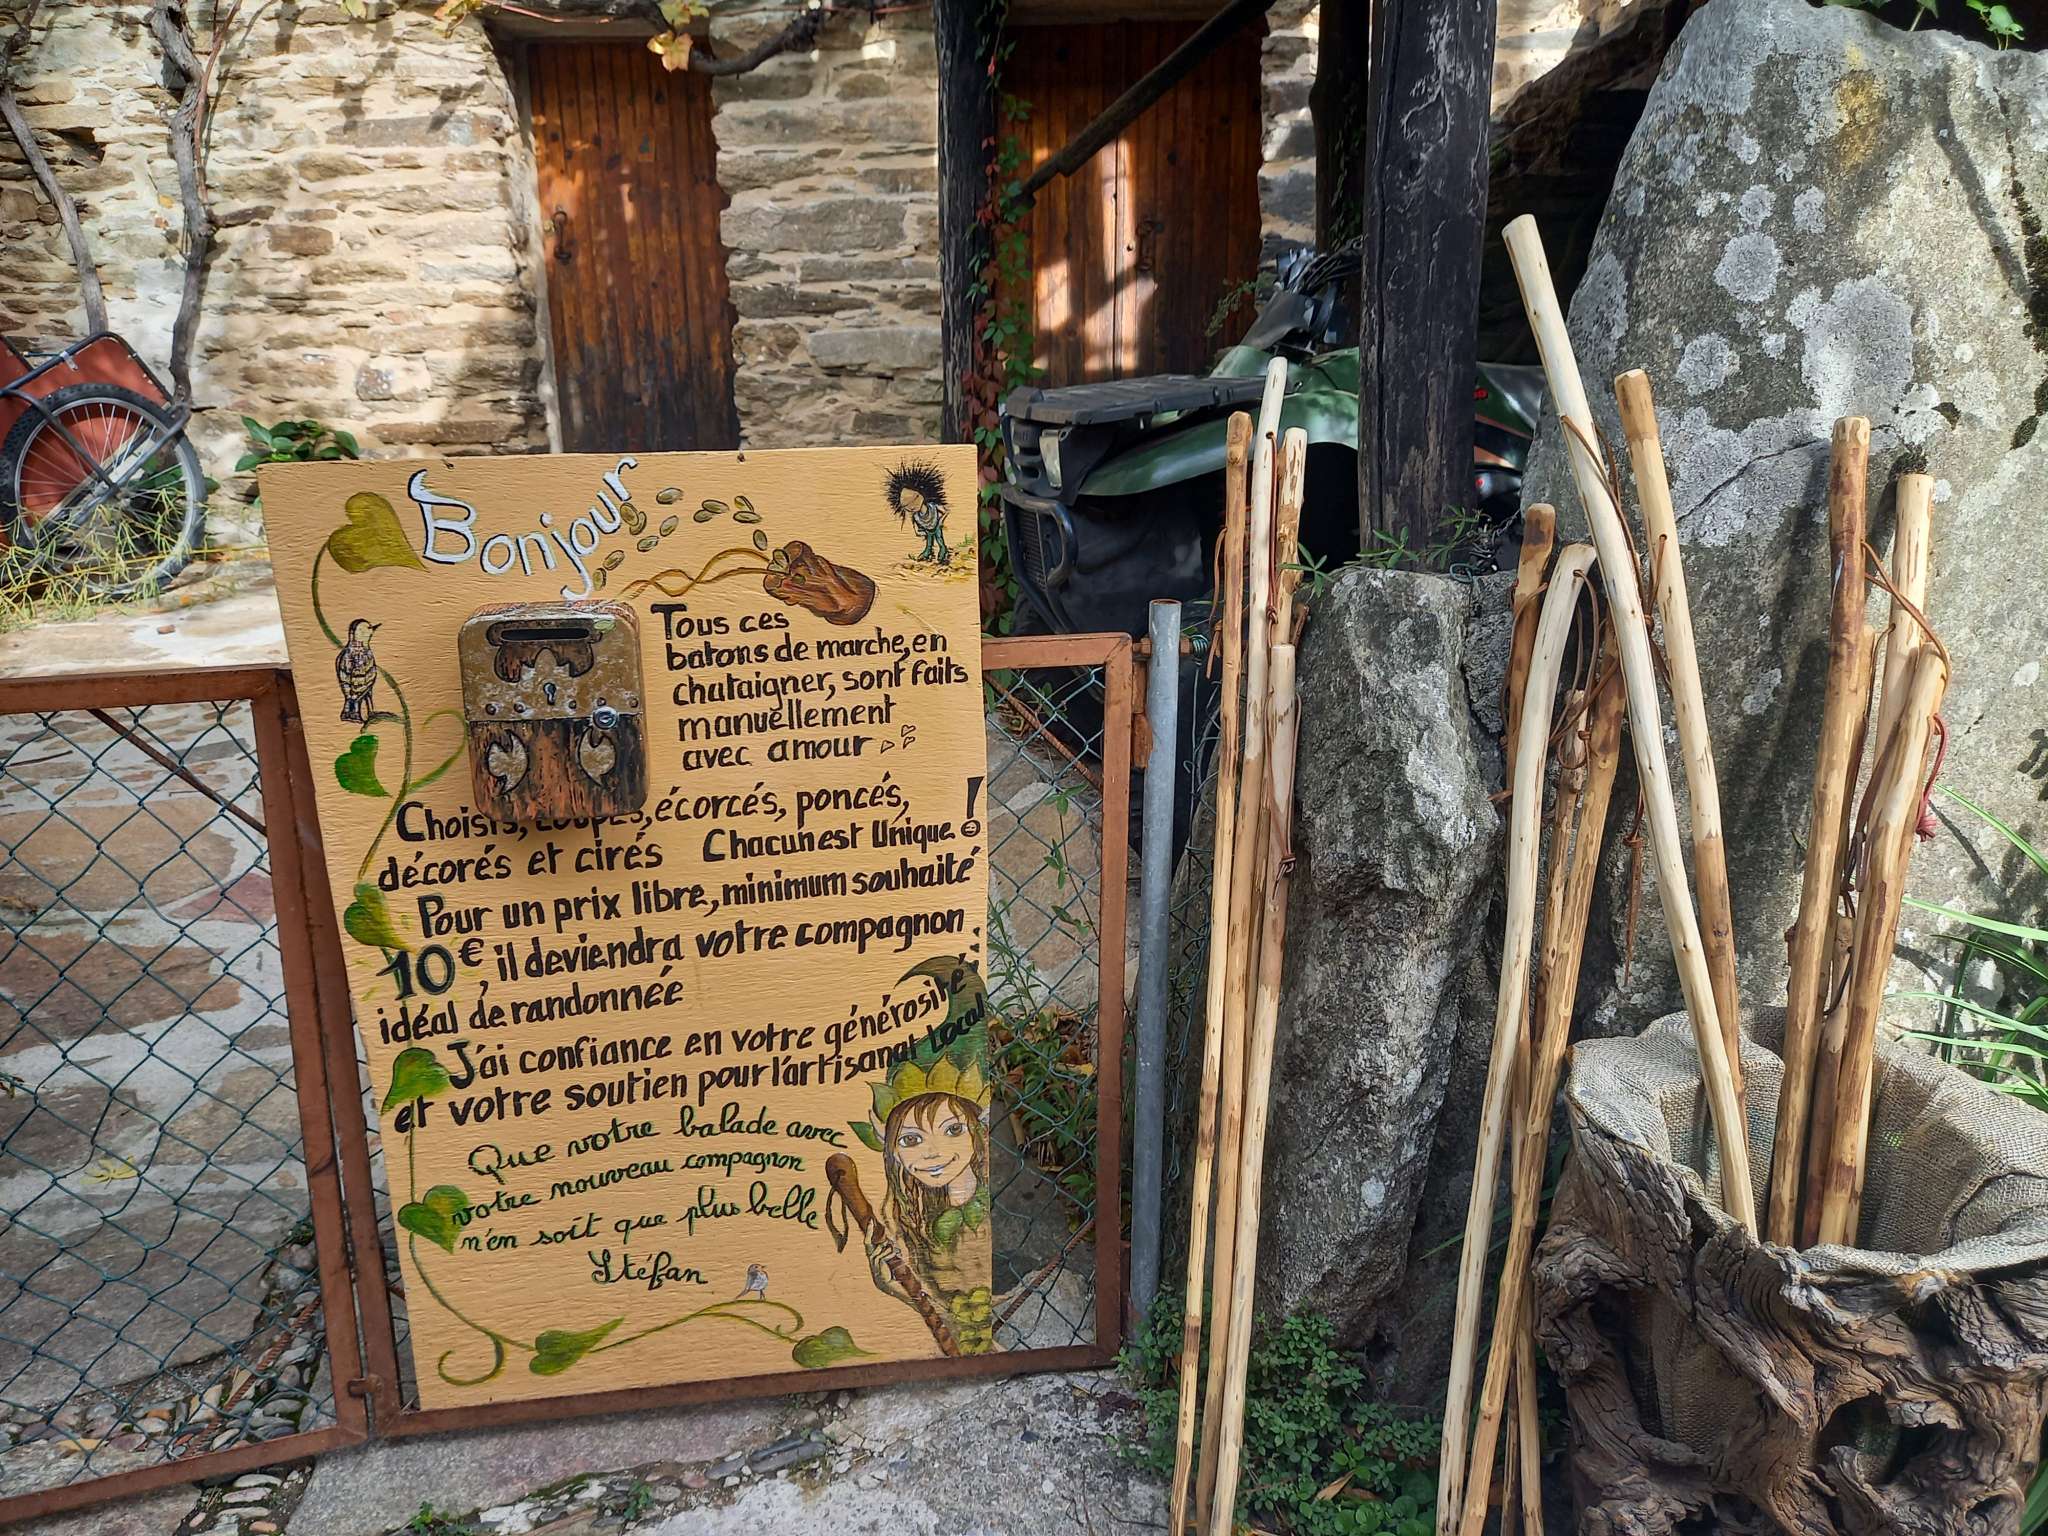 Bonjour
Tous ces
batons de marche, en
chataigner, sont faits
manuellement
avec amour
Choisis, coupés, écorcés, poncés,
décorés et cirés Chacun est Unique !
Pour un prix libre, minimum souhaité
10€, il deviendra votre compagnon
idéal de randonnée
J'ai confiance en votre générosité
et votre soutien pour l'artisanat Local
Que votre balade avec
votre nouveau compagnon
n'en soit que plus belle
Stéfan